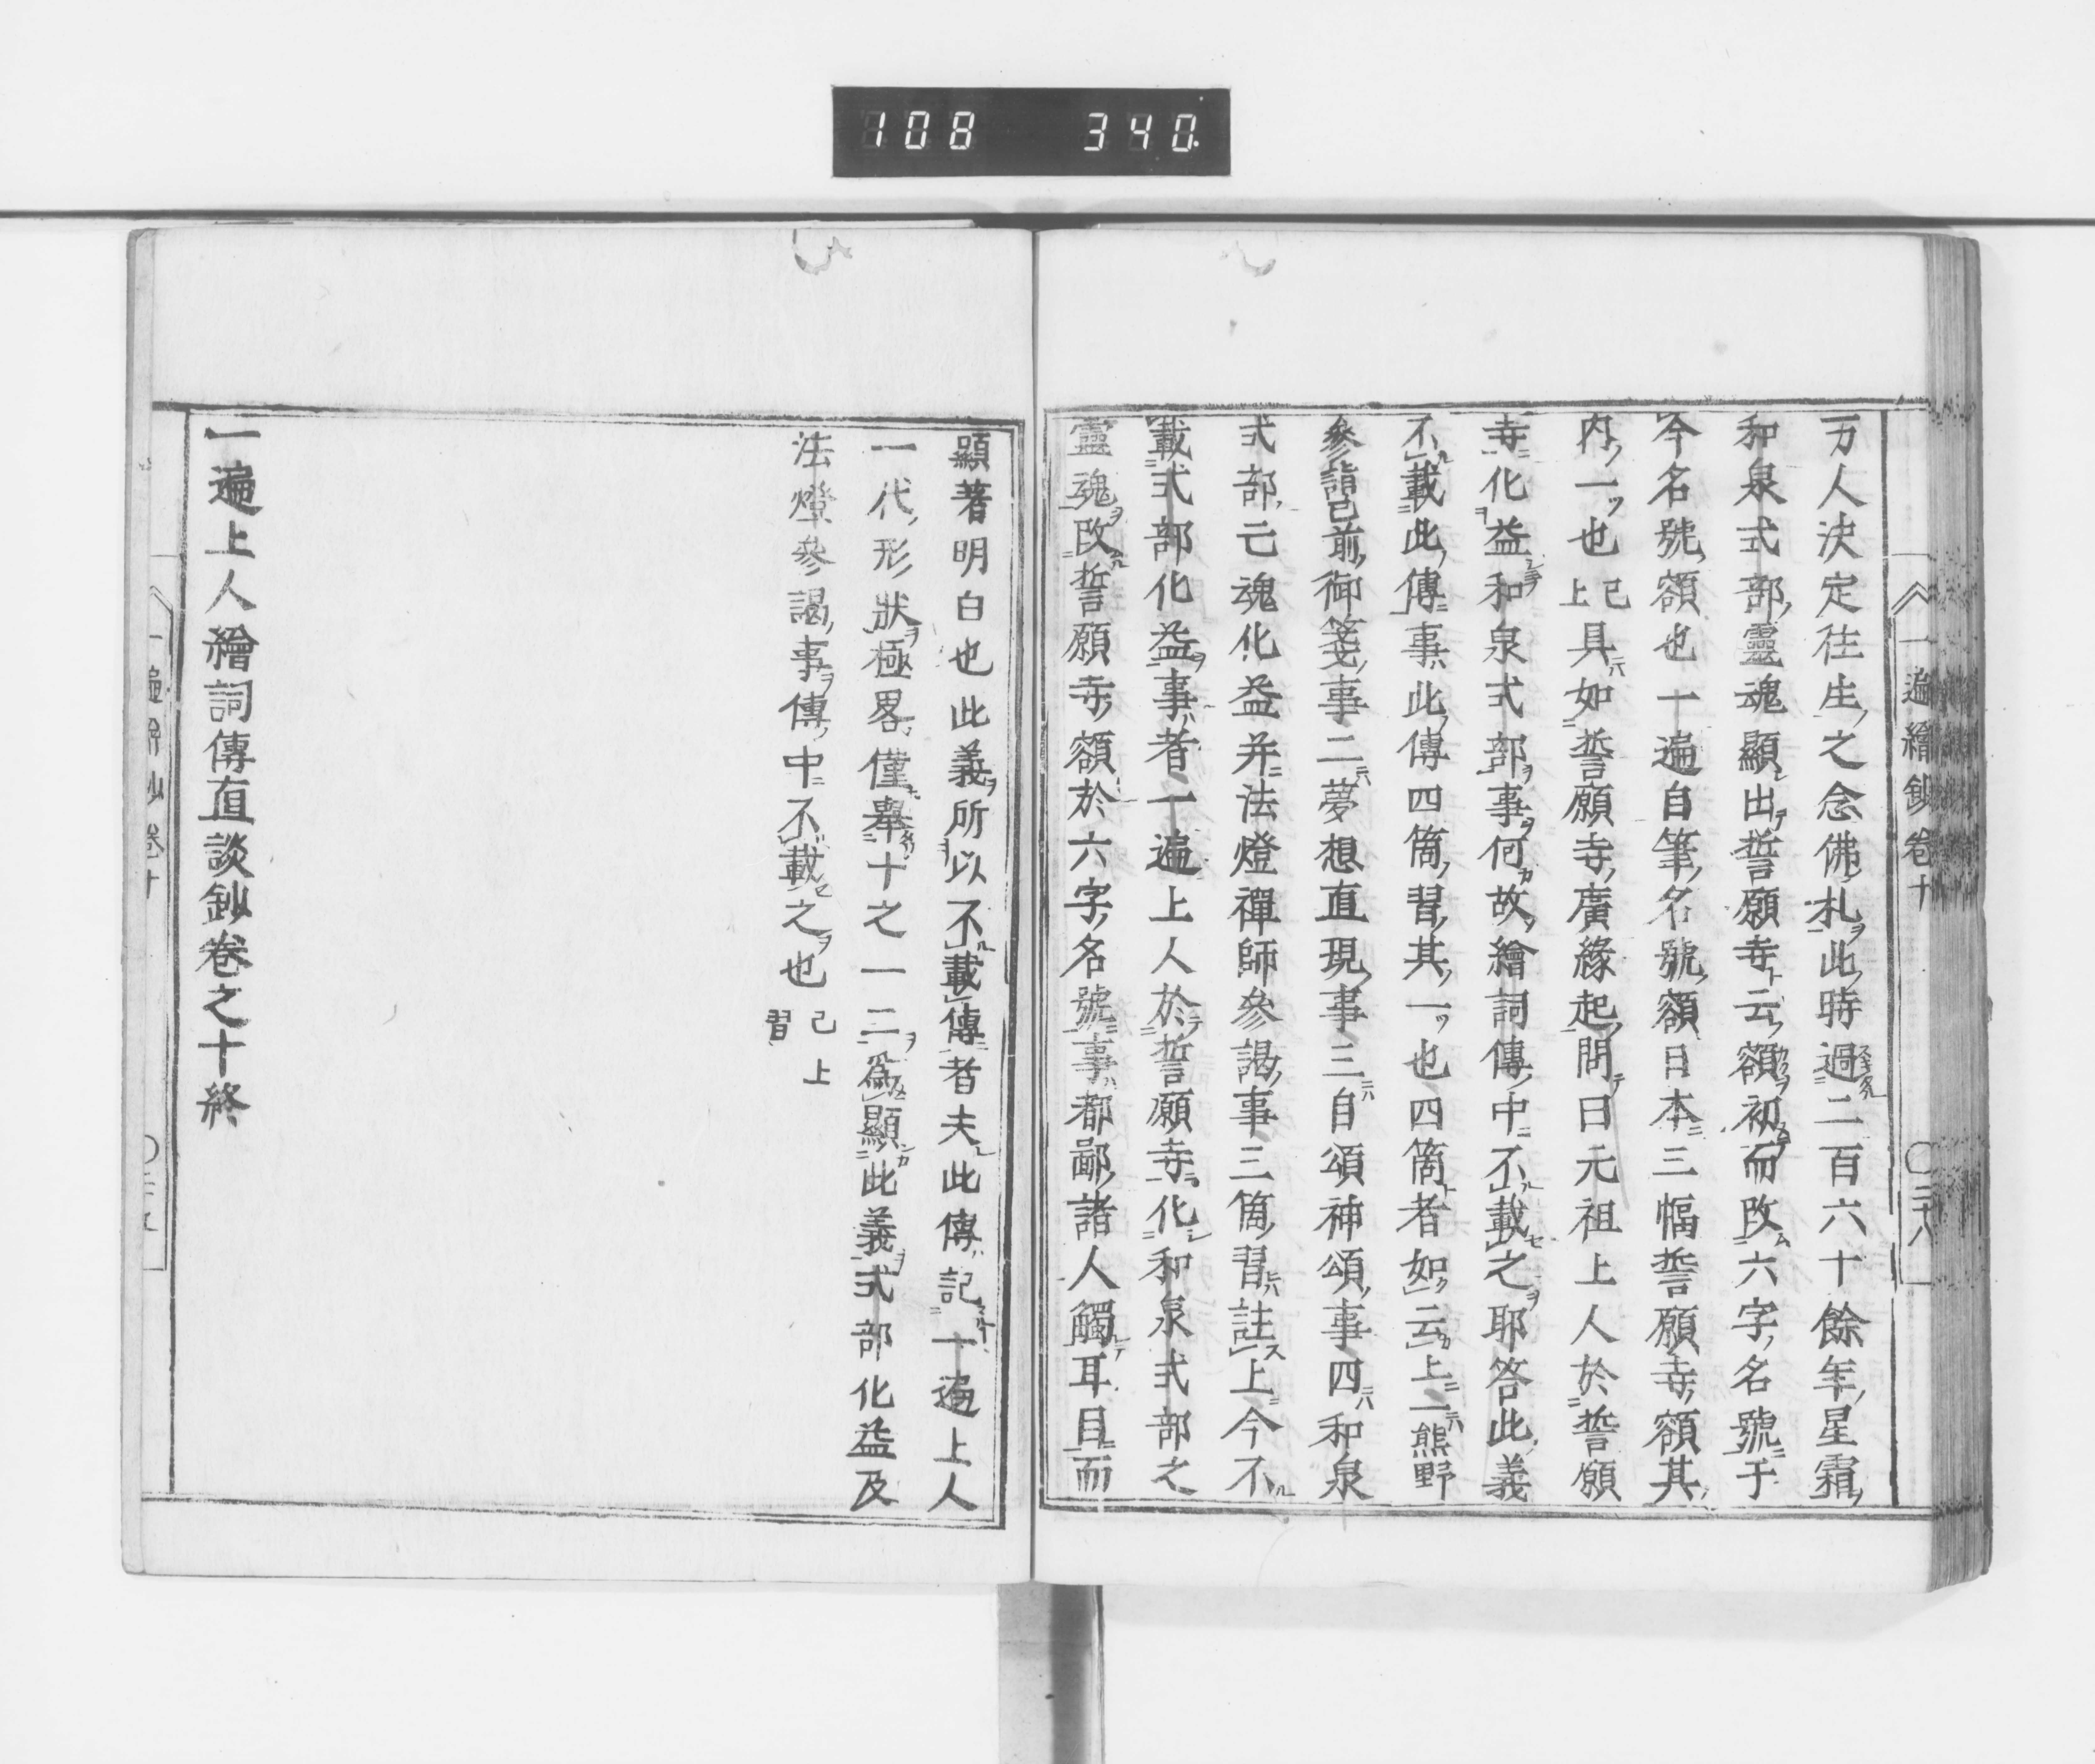 108 340
一遍繪鈔卷十
〇三十八
万人決定往生之念佛札此時過二百六十餘年星霜
和泉式部靈魂顯出誓願寺云額初而改六字名號于
今名號額也一遍自筆名號額日本三幅誓願寺額其
内一也已上具如誓願寺廣緣起問曰元祖上人於誓願
寺化益和泉式部事何故繪詞傳中不載之耶答此義
不載此傳事此傳四箇習其一也四箇者如云上一熊野
參詣已前御箋事二夢想直現事三自頌神頌事四和泉
式部亡魂化益并法燈禪師參謁事三箇習註上今不
載式部化益事者一遍上人於誓願寺化和泉式部之
靈魂改誓願寺額於六字名號事都鄙諸人觸耳目而
顯著明白也此義所以不載傳者夫此傳記一遍上人
一代形狀極畧僅擧十之一二爲顯此義式部化益及
法燈參謁事傳中不載之也已上習
一遍上人繪詞傳直談鈔卷之十終